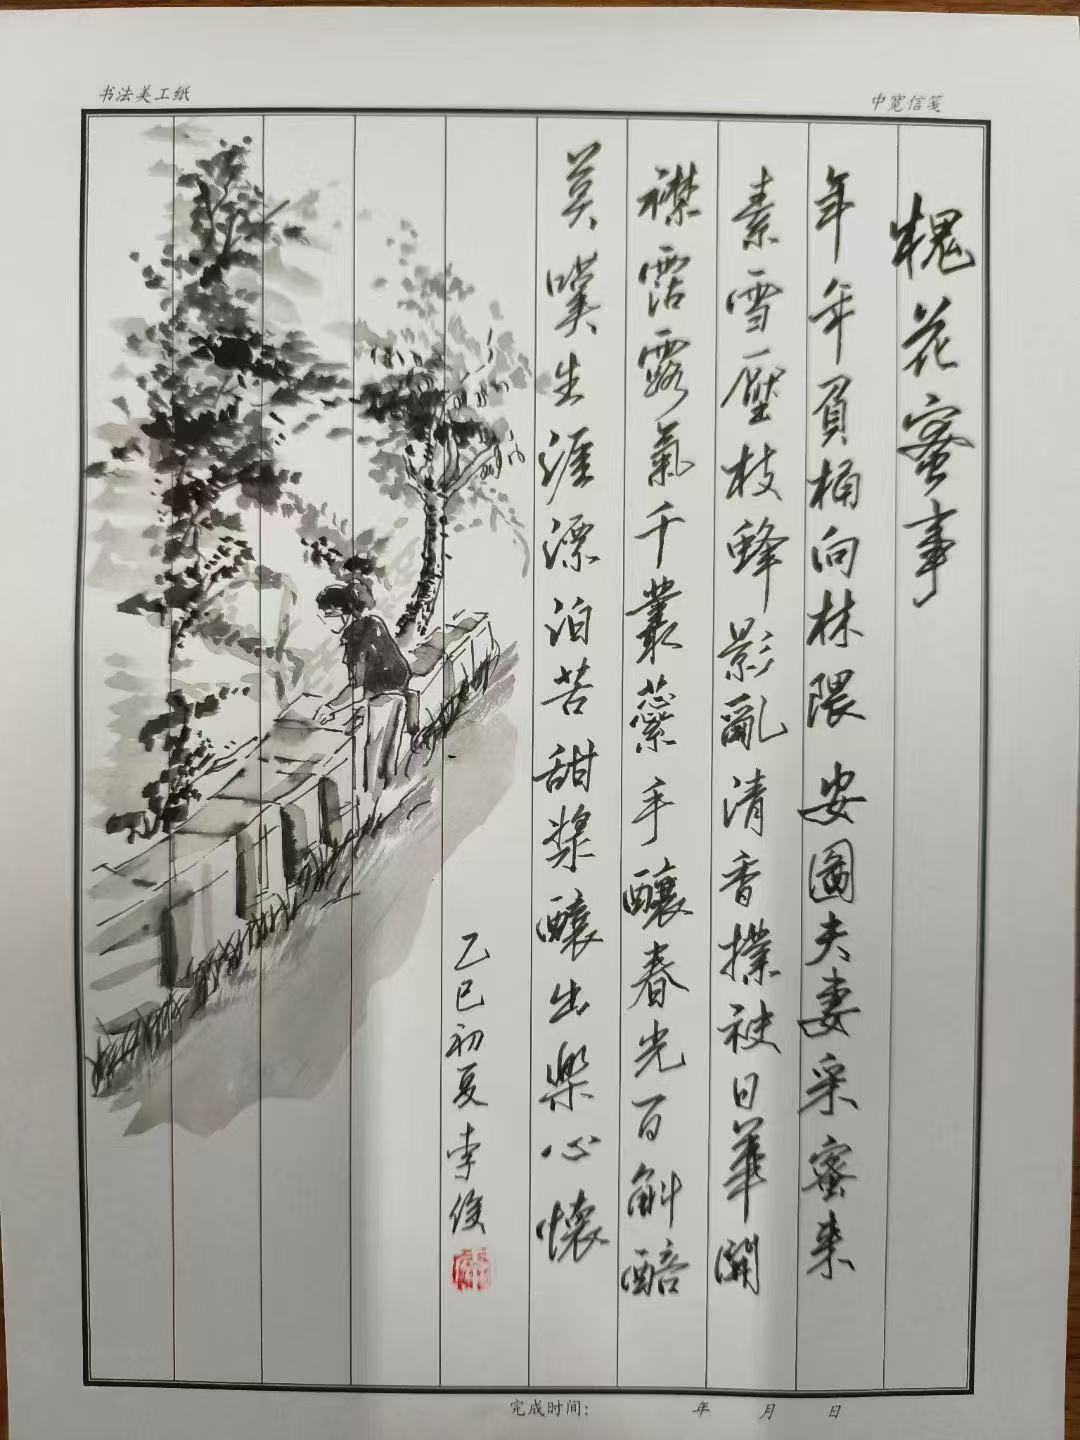 书法美工纸
中宽信笺
槐花蜜事
年年負桶向林隈安圖夫妻采蜜来
素雪壓枝蜂影亂清香撲袂日華開
襟霑露氣千叢蘂手釀春光百斛醅
莫嘆生涯漂泊苦甜漿釀出樂心懷
乙巳初夏李俊
完成时间： 年 月 日